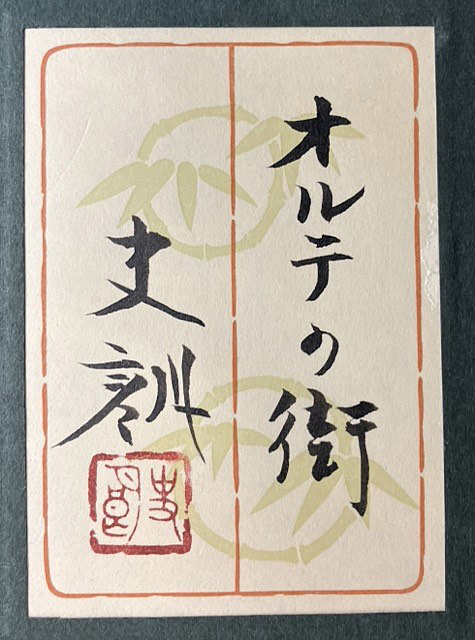 オルテの街
史訓